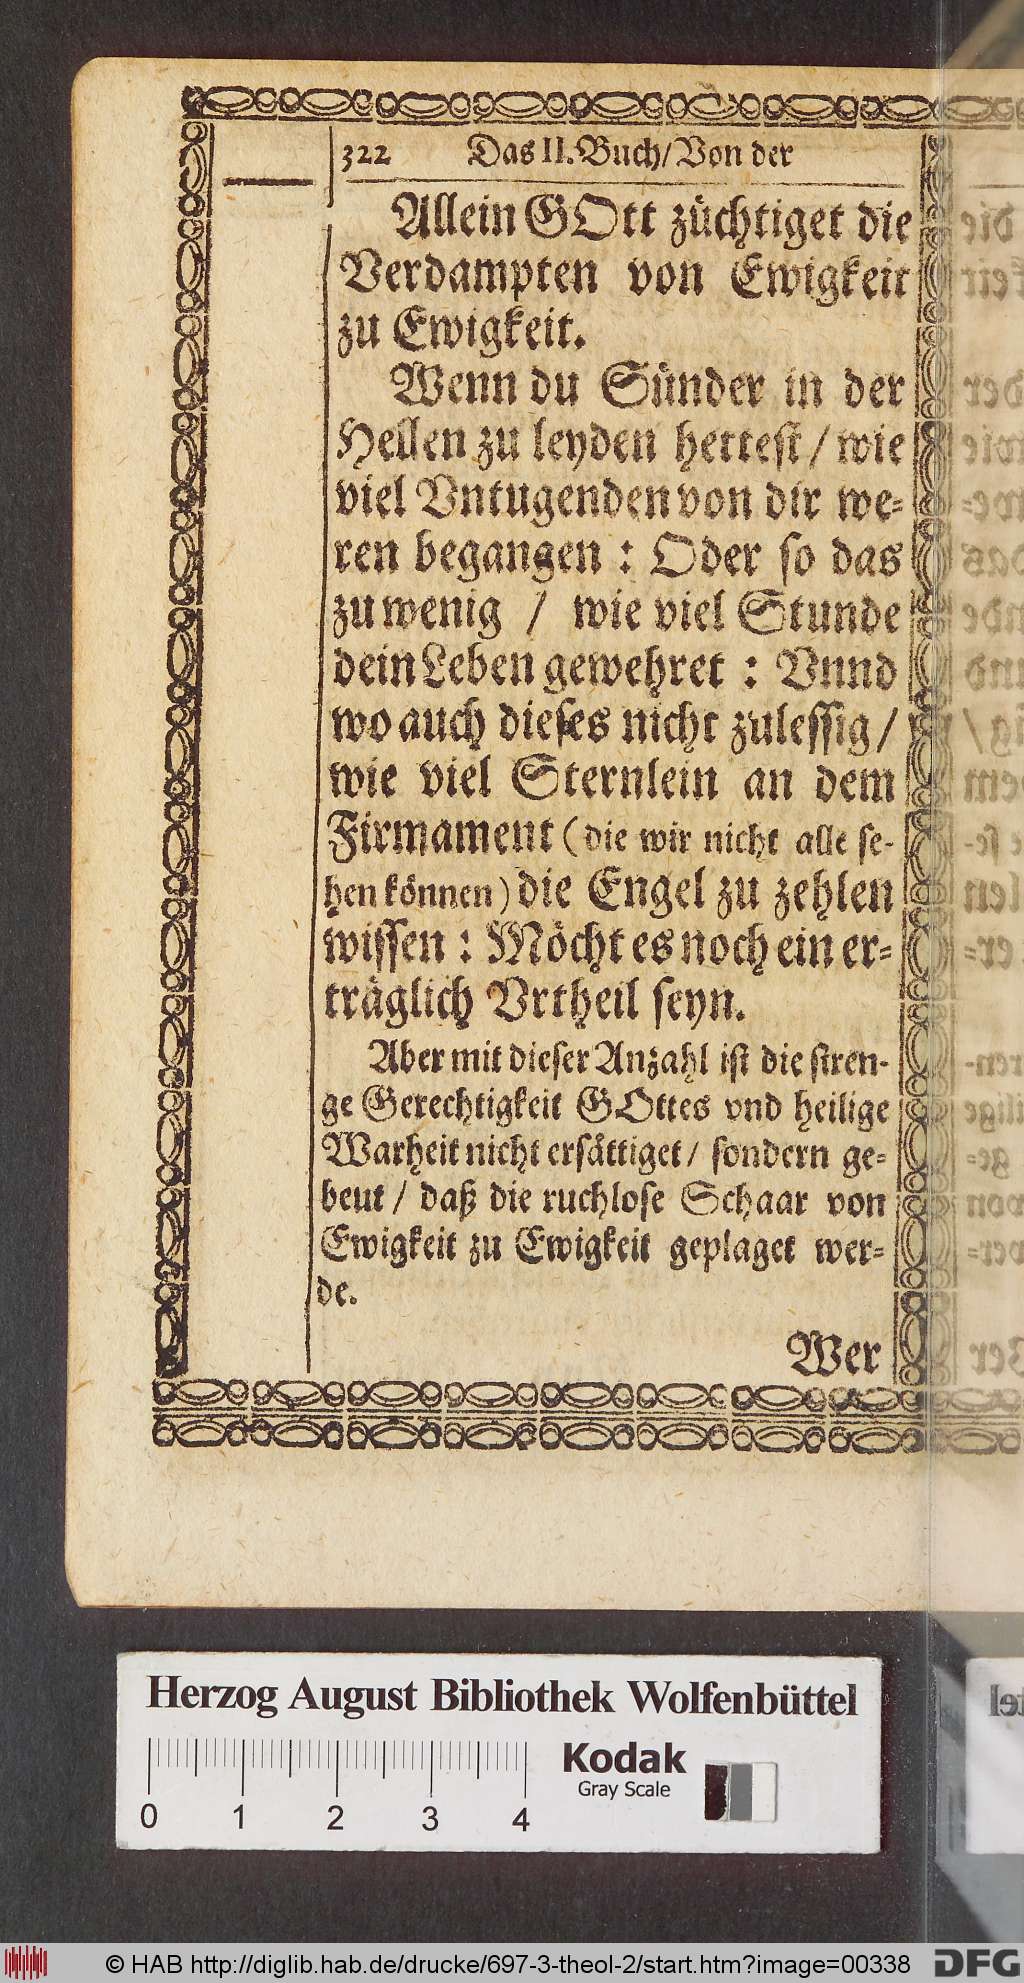 322 Das II. Buch/ Von der
Allein GOtt züchtiget die
Verdampten von Ewigkeit
zu Ewigkeit.
Wenn du Sünder in der
Hellen zu leyden hettest / wie
viel Vntugenden von dir we-
ren begangen : Oder so das
zu wenig / wie viel Stunde
dein Leben gewehret : Vnnd
wo auch dieses nicht zulessig /
wie viel Sternlein an dem
Firmament (die wir nicht alle se-
hen können) die Engel zu zehlen
wissen : Möcht es noch ein er-
träglich Vrtheil seyn.
Aber mit dieser Anzahl ist die stren-
ge Gerechtigkeit GOttes vnd heilige
Warheit nicht ersättiget / sondern ge-
beut / daß die ruchlose Schaar von
Ewigkeit zu Ewigkeit geplaget wer-
de.
Wer
Herzog August Bibliothek Wolfenbüttel
Kodak
Gray Scale
0 1 2 3 4
© HAB http://diglib.hab.de/drucke/697-3-theol-2/start.htm?image=00338
DFG